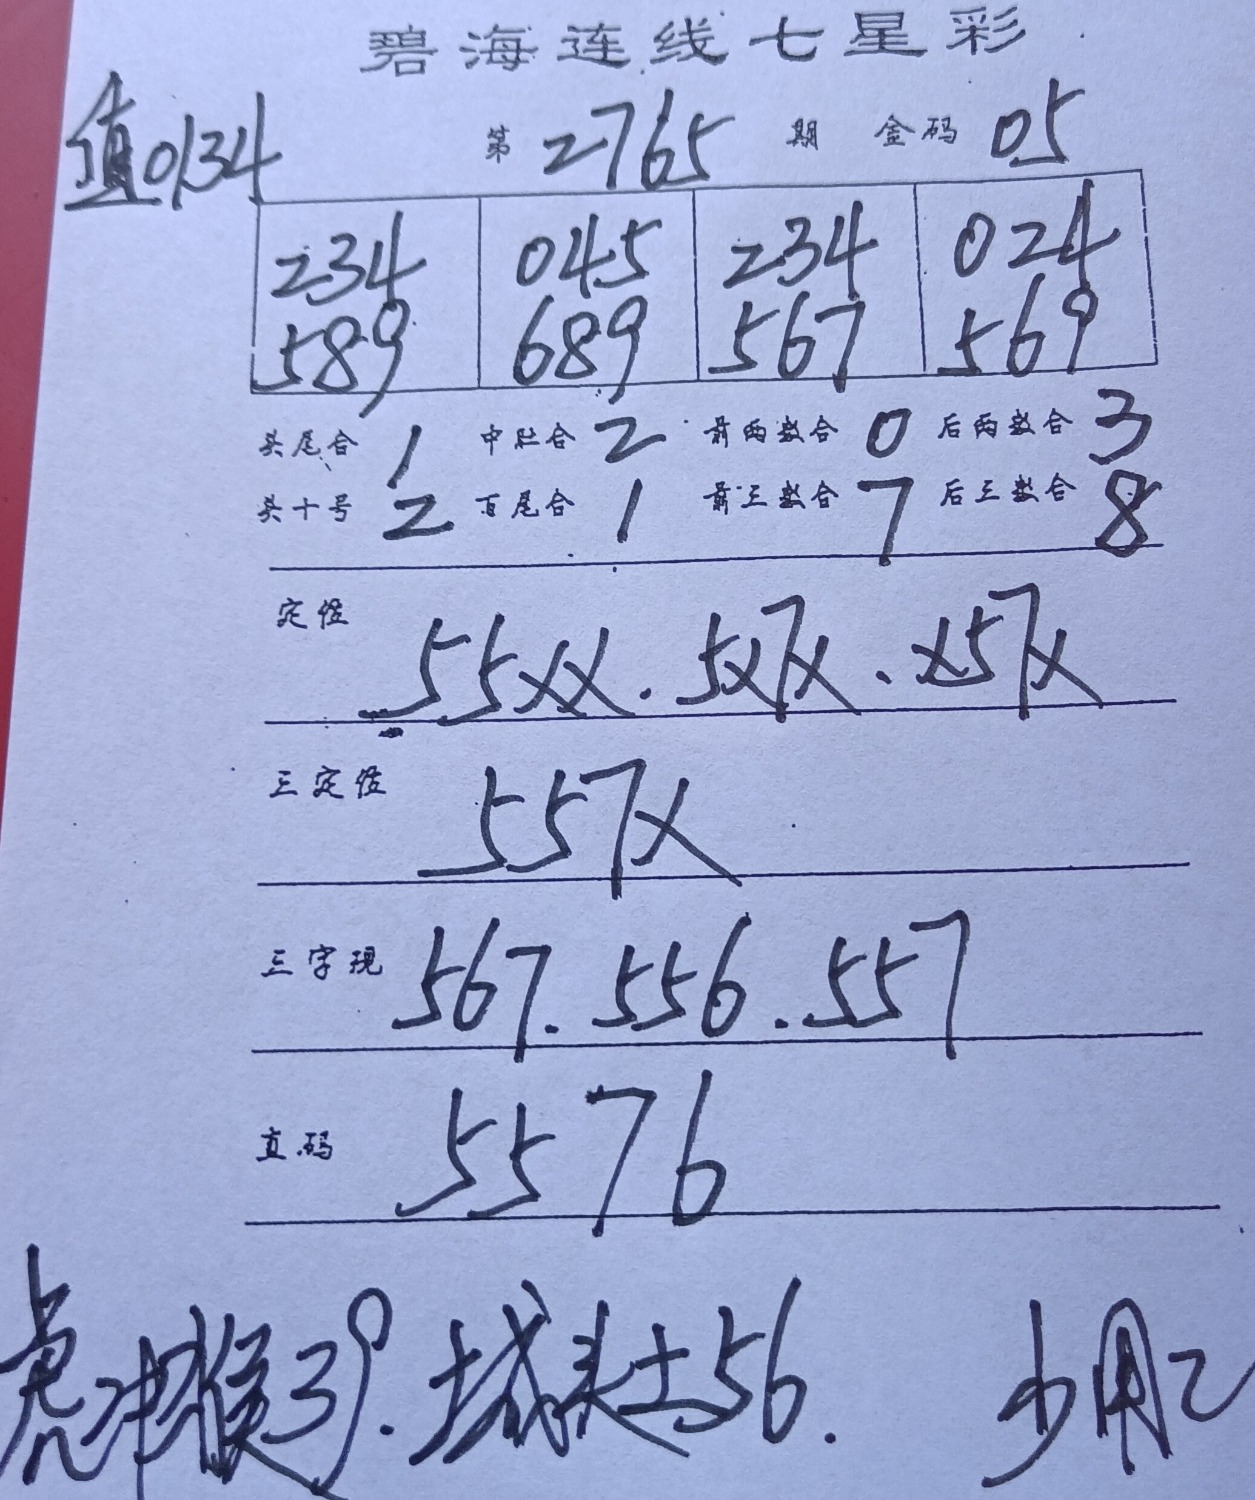 碧海连线七星彩
值0134
第 2765 期 金码 05
234 045 234 024
589 689 567 569
头尾合 1 中肚合 2 前两数合 0 后两数合 3
头十号 2 百尾合 1 前三数合 7 后三数合 8
定位 55XX.5X7X.X57X
三定位 557X
三字现 567.556.557
直码 5576
虎冲猴39.城头土56. 少用2